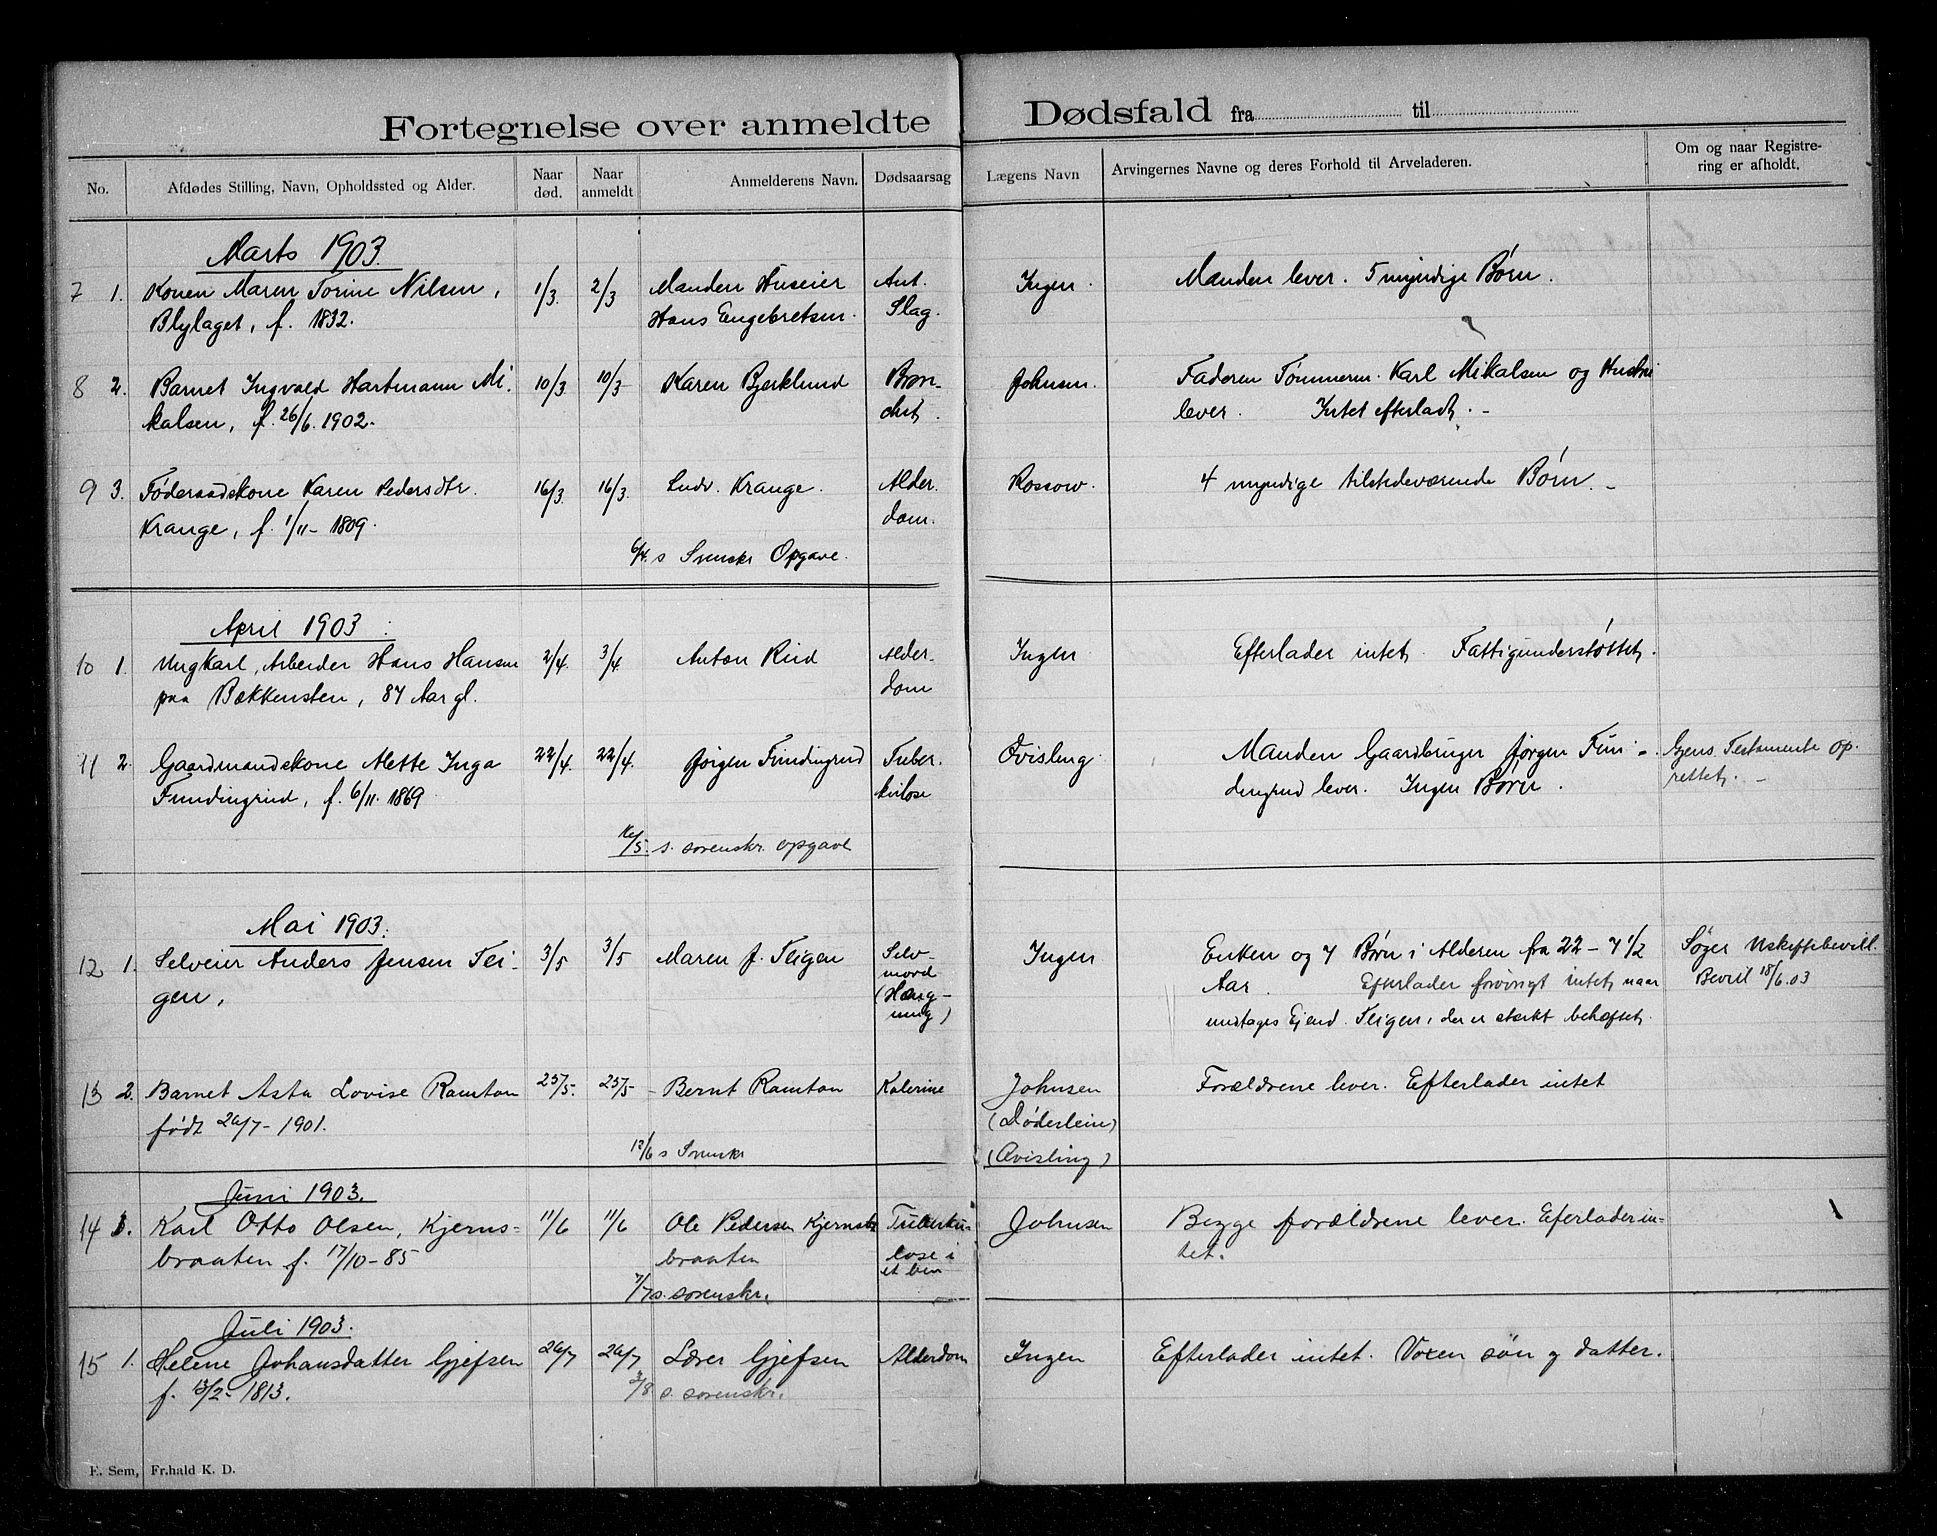 Fortegnelse over anmeldte Dødsfald fra til
No. Afdødes Stilling, Navn, Opholdssted og Alder. Naar død. Naar anmeldt Anmelderens Navn. Dødsaarsag Lægens Navn Arvingernes Navne og deres Forhold til Arveladeren. Om og naar Registrering er afholdt.
Marts 1903.
7 1. Konen Maren Torine Nilsen, 1/3. 2/3 Manden Huseier Ant. Ingen. Manden lever. 5 myndige Børn.
Blylaget, f. 1832. Hans Engebretsen. Slag.
8 2. Barnet Ingvald Hartmann Mi- 10/3. 10/3 Karen Bjerklund Bron- Johnsen. Faderen Tømmerm. Karl Mikalsen og Hustru
kalsen, f. 26/6. 1902. chit. lever. Intet efterladt. -
9 3. Føderaadskone Karen Pedersdtr. 16/3. 16/3. Ludv. Krange. Alder- Rossow. 4 myndige tilstedeværende Børn. -
Krange, f. 1/11 - 1809. dom.
6/4. s Svenskr Opgave.
April 1903.
10 1. Ungkarl, Arbeider Hans Hansen 2/4. 3/4 Anton Rud Alder- Ingen Efterlader intet. Fattigunderstøttet.
paa Bækkensten, 84 Aar gl. dom
11 2. Gaardmandskone Mette Inga 22/4. 22/4. Jørgen Fundingrud Tuber- Qvisling Manden Gaardbruger Jørgen Fun- Gjens. Testamente op-
Fundingrud, f. 6/11. 1869 kulose dingrud lever. Ingen Børn. rettet. -
16/5. s. sorenskr. opgave
Mai 1903.
12 1. Selveier Anders Jensen Tei- 3/5 3/5 Maren J. Teigen Selv- Ingen Enken og 7 Børn i Alderen fra 22 - 7 1/2 Søger Uskiftebevill.
gen, mord Aar. Efterlader forøvrigt intet naar Bevil 18/6.03
(Hæng- undtages Ejend. Teigen, der er stærkt behæftet.
ning)
13 2. Barnet Asta Lovise Ramton 25/5. 25/5 - Bernt Ramton Katerine Johnsen Forældrene lever. Efterlader intet
født 26/7 - 1901. (Døderlein)
12/6 s Svenskr (Qvisling)
Juni 1903.
14 1. Karl Otto Olsen, Kjerns- 11/6 11/6 Ole Pedersen Kjerns- Tuberku- Johnsen Begge forældrene lever. Eferlader in-
braaten f. 17/10 - 85 braaten lose i tet.
et ben
7/7 s. sorenskr.
Juli 1903.
15 1. Helene Johansdatter Gjefsen 26/7 26/7 Lærer Gjefsen Alderdom Ingen Efterlader intet. Voxen søn og datter.
f. 13/2 - 1813. 3/8 s. sorenskr.
E. Sem, Fr.hald K. D.